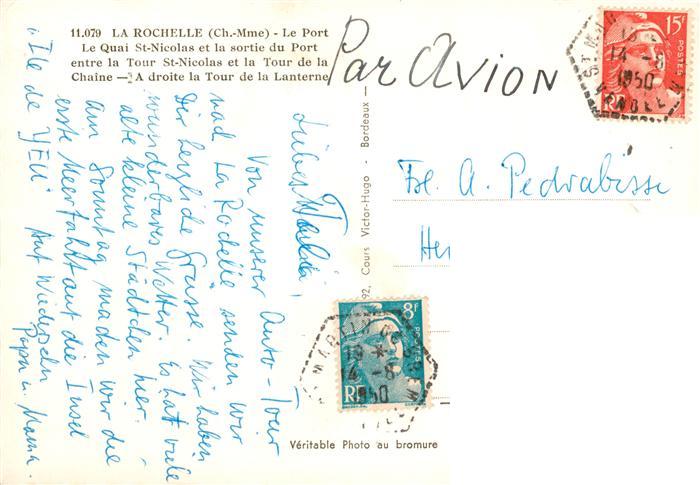 11.079 LA ROCHELLE (Ch.-Mme) - Le Port
Le Quai St-Nicolas et la sortie du Port
entre la Tour St-Nicolas et la Tour de la
Chaîne — A droite la Tour de la Lanterne
Par AVION
15F
POSTES
RF
14 -8
1950
Frl. A. Pedrabissi
Her
Liebes
Von unserer Auto-Tour
nach La Rochelle senden wir
Dir herzliche Grüsse. Wir haben
wunderbares Wetter. Es hat viele
alte kleine Städtchen hier.
Am Sonntag machen wir die
erste Meerfahrt auf die Insel
Ile de YEU. Auf Wiedersehn
Papa u. Mama.
92, Cours Victor-Hugo - Bordeaux -
8F
POSTES
RF
14 -8
1950
Véritable Photo au bromure